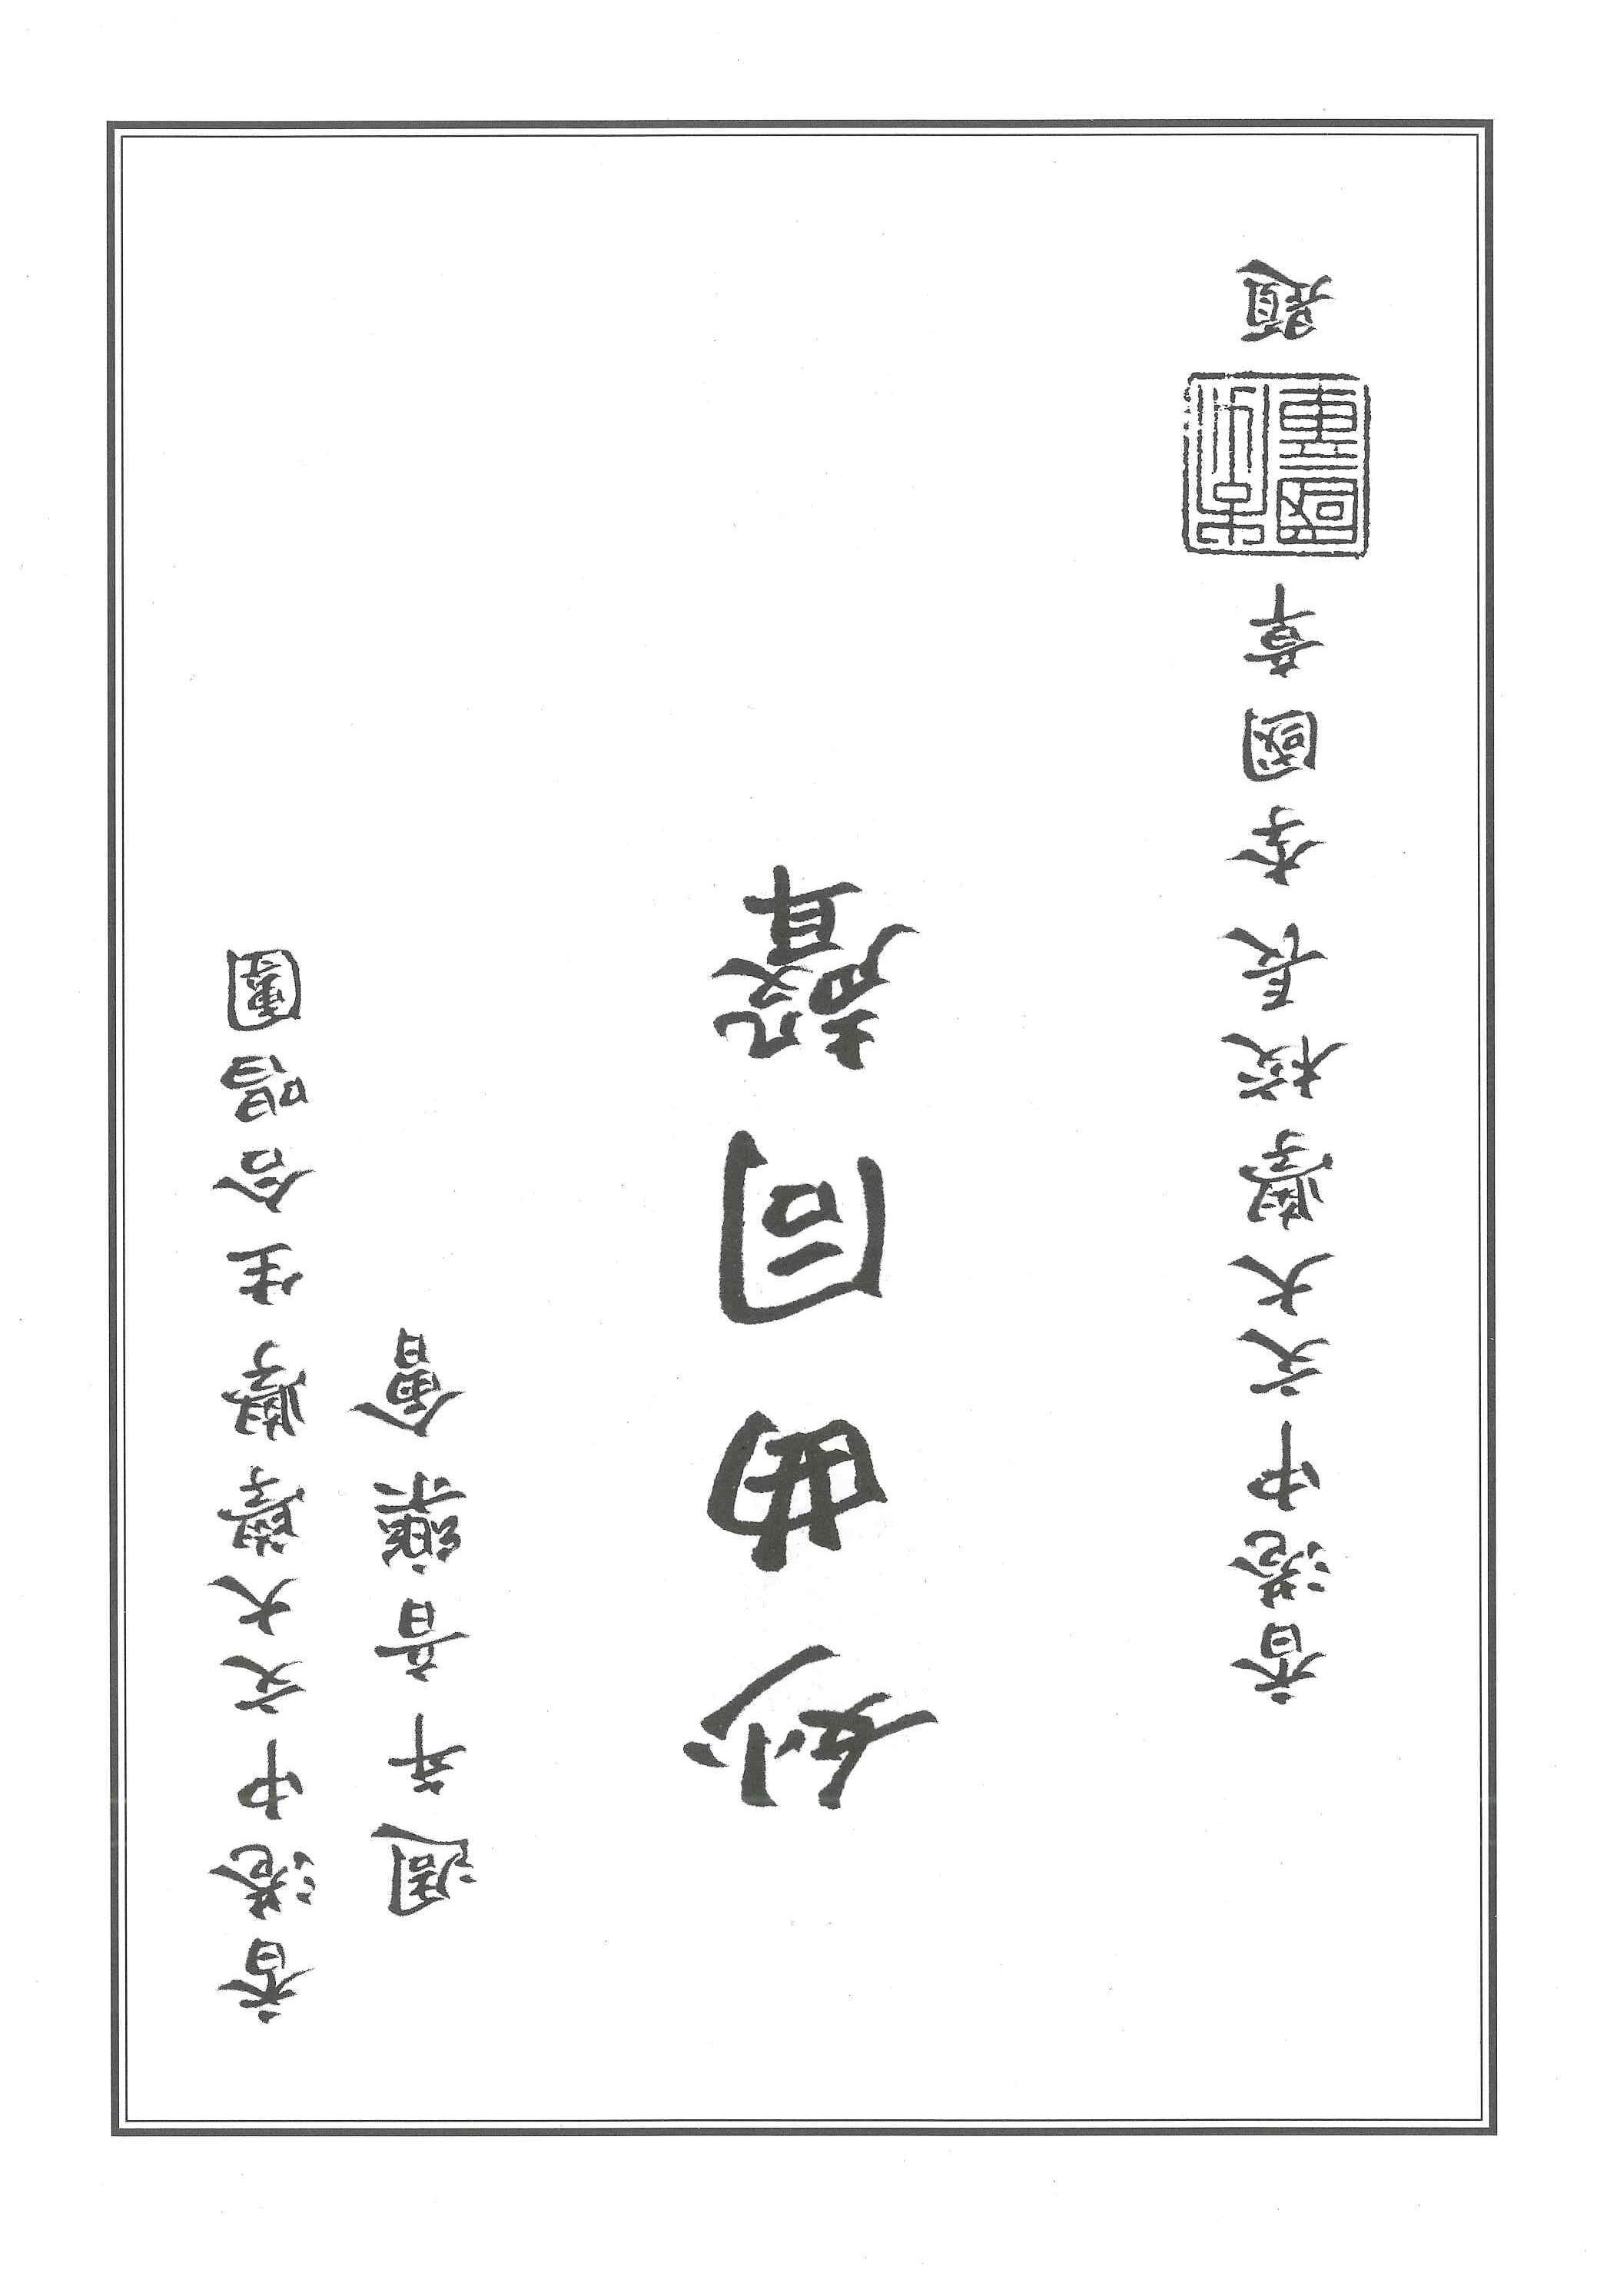 香港中文大學學生合唱團
週年音樂會
妙曲同聲
香港中文大學校長李國章題